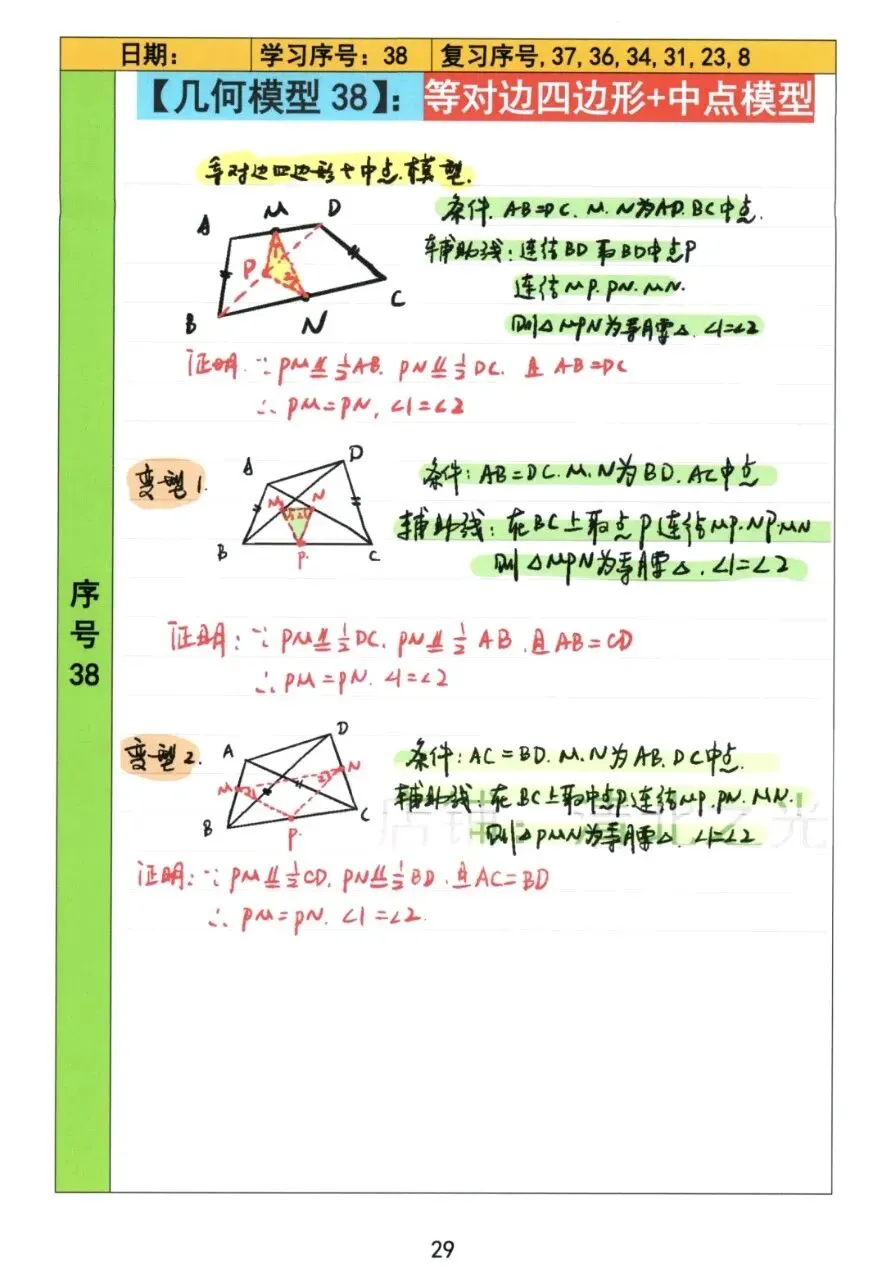 日期: 学习序号: 38 复习序号,37,36,34,31,23,8
【几何模型 38】: 等对边四边形+中点模型
序号38
等对边四边形+中点模型.
A M D
P 2
B N C
条件. AB=DC. M.N为AD.BC中点.
辅助线: 连结BD取BD中点P
连结MP.PN.MN.
则△MPN为等腰△.∠1=∠2
证明.∵PM⫽=½AB. PN⫽=½DC. 且AB=DC
∴PM=PN,∠1=∠2
变型1.
A D
M N
1 2
B P. C
条件: AB=DC.M.N为BD.AC中点
辅助线: 在BC上取点P连结MP.NP.MN
则△MPN为等腰△.∠1=∠2
证明:∵PM⫽=½DC.PN⫽=½AB.且AB=CD
∴PM=PN.∠1=∠2
变型2.
A D
M N
1 2
B P. C
条件:AC=BD.M.N为AB.DC中点.
辅助线:在BC上取中点P连结MP.PN.MN.
则△PMN为等腰△.∠1=∠2
证明:∵PM⫽=½CD.PN⫽=½BD.且AC=BD
∴PM=PN.∠1=∠2.
29